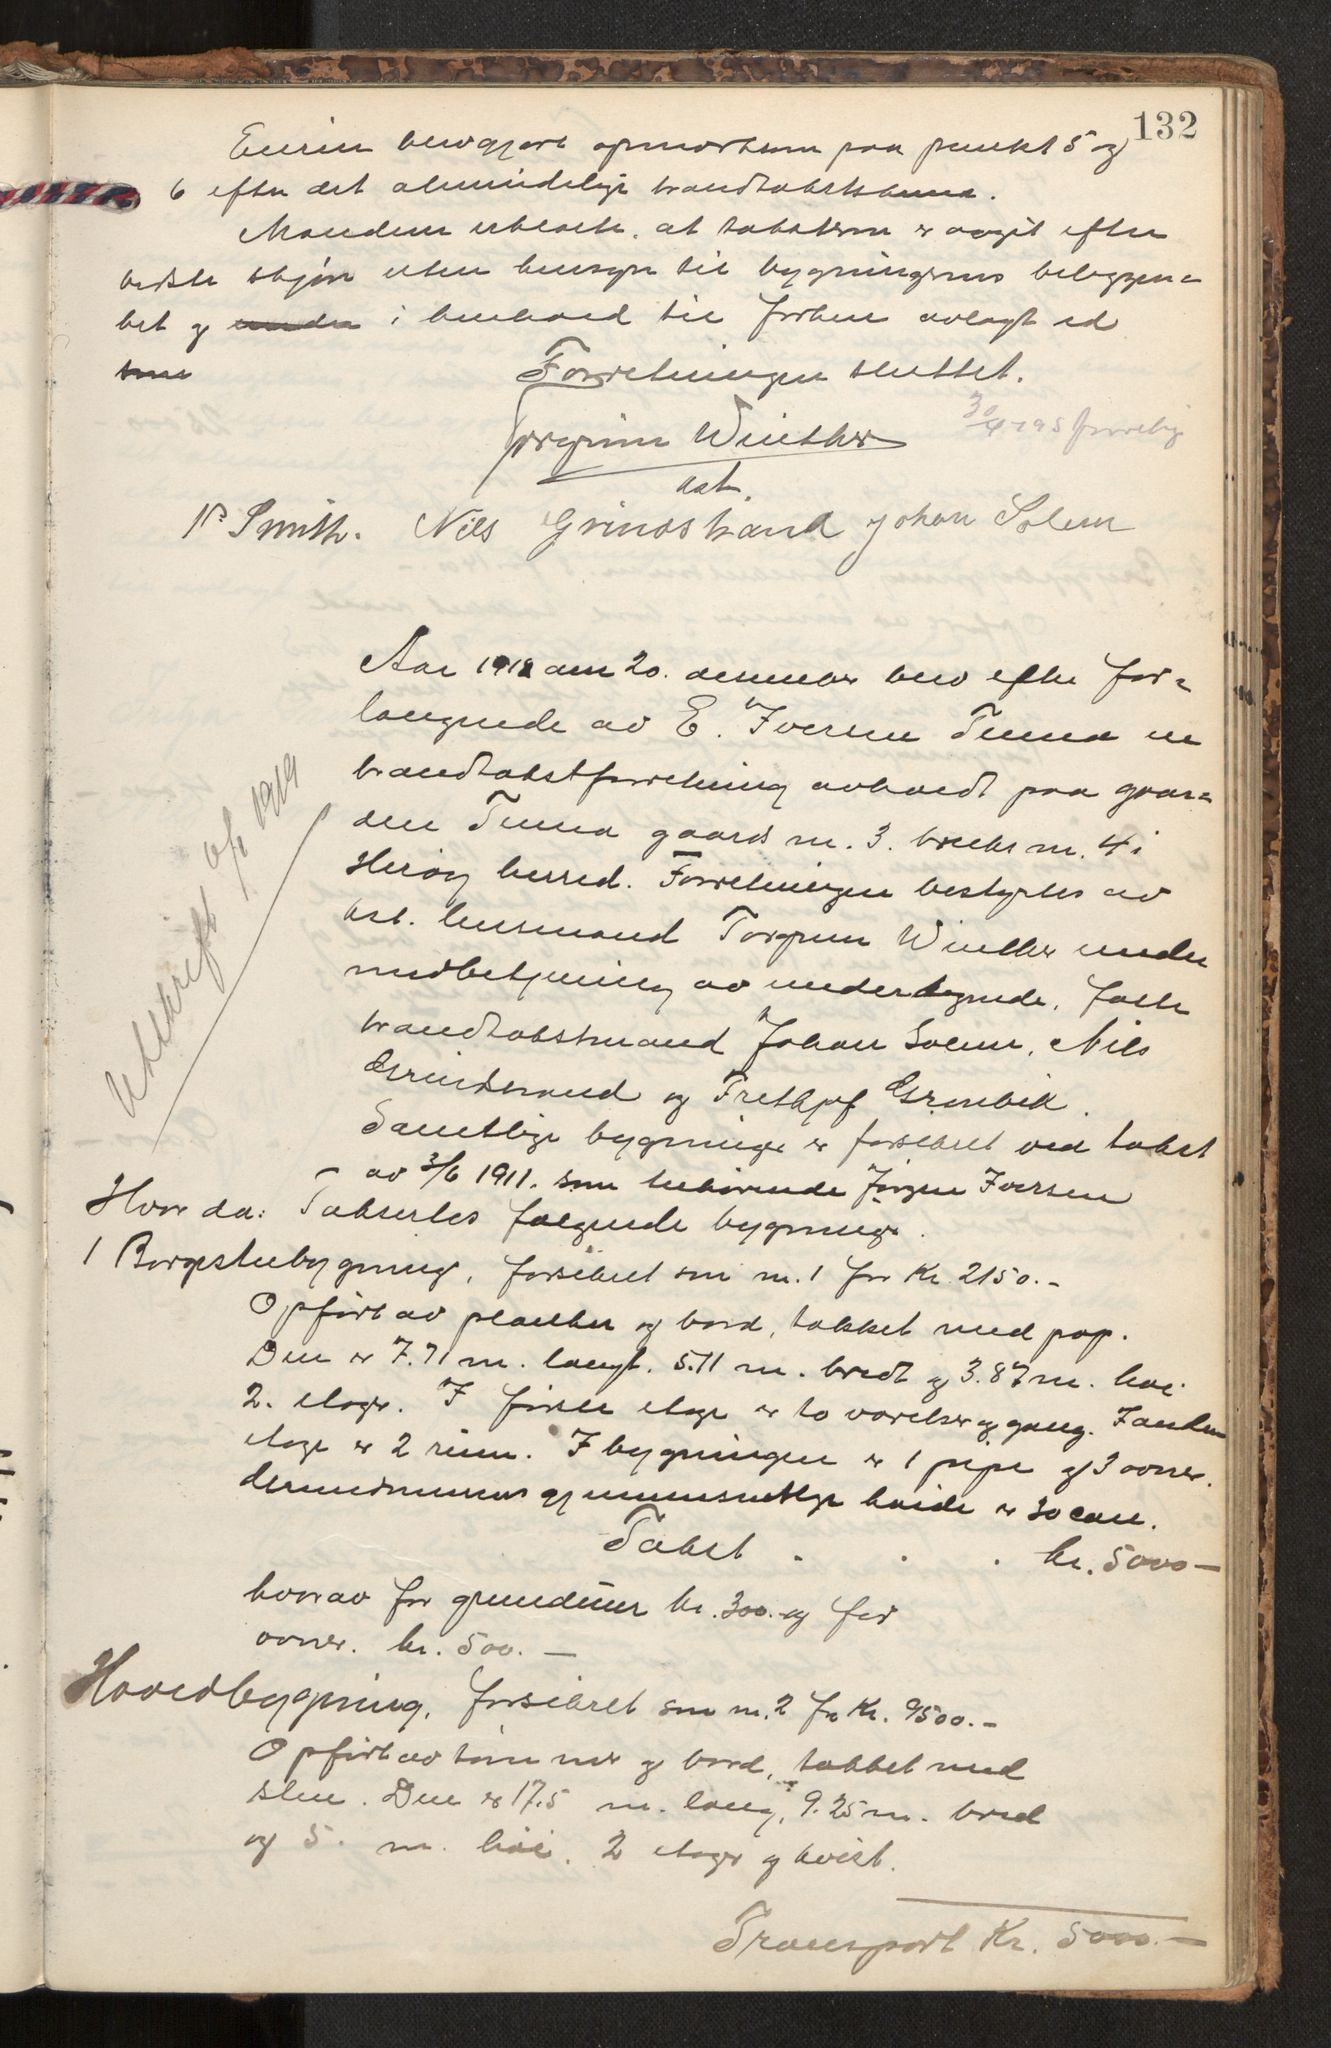 132
Eieren blev gjort opmerksom paa punkt 5 og
6 efter det almindelige brandtakstskema.
Mændene erklærte, at taksten er avgit efter
bedste skjøn uten hensyn til bygningernes beliggen=
het og i henhold til før avlagt ed
Forretningen sluttet.
Torginn Winther
ast.
P. Smith. Nils Grindstrand Johan Solem
Aar 1918 den 20. desember blev efter for=
langende av E. Iversen Tenna en
brandtakstforretning avholdt paa gaar=
den Tenna gaards nr. 3. bruks nr. 4 i
Herøy herred. Forretningen bestyrtes av
ast. lensmand Torginn Winther under
medbetjening av undertegnede, faste
brandtakstmænd Johan Solem, Nils
Grindstrand og Frethjof Grønbek.
Utskrift 1919
Samtlige bygninger er forsikret ved takst
av 3/6 1911. som tilhørende Jørgen Iversen
Hvorda: Taksertes følgende bygninger.
1 Borgestubygning, forsikret som nr. 1 for Kr. 2150.-
Opført av planker og bord, tækket med pap.
Den er 7.71 m. langt. 5.11 m. bredt og 3.87 m. høi.
2. etager. I første etage er to værelser og gang. I anden
etage er 2 rum. I bygningen er 1 pipe og 3 ovner.
Grundmurens gjennemsnitlige høide er 30 cm.
Takst . . . kr. 5000-
hvorav for grundmur kr. 300.- og for
ovner. kr. 500.-
Hovedbygning, forsikret som nr. 2 for Kr. 9500.-
Opført av tømmer og bord, tækket med
sten. Den er 17.5 m. lang, 9.25 m. bred
og 5. m. høi. 2 etager og kvist.
Transport Kr. 5000.-